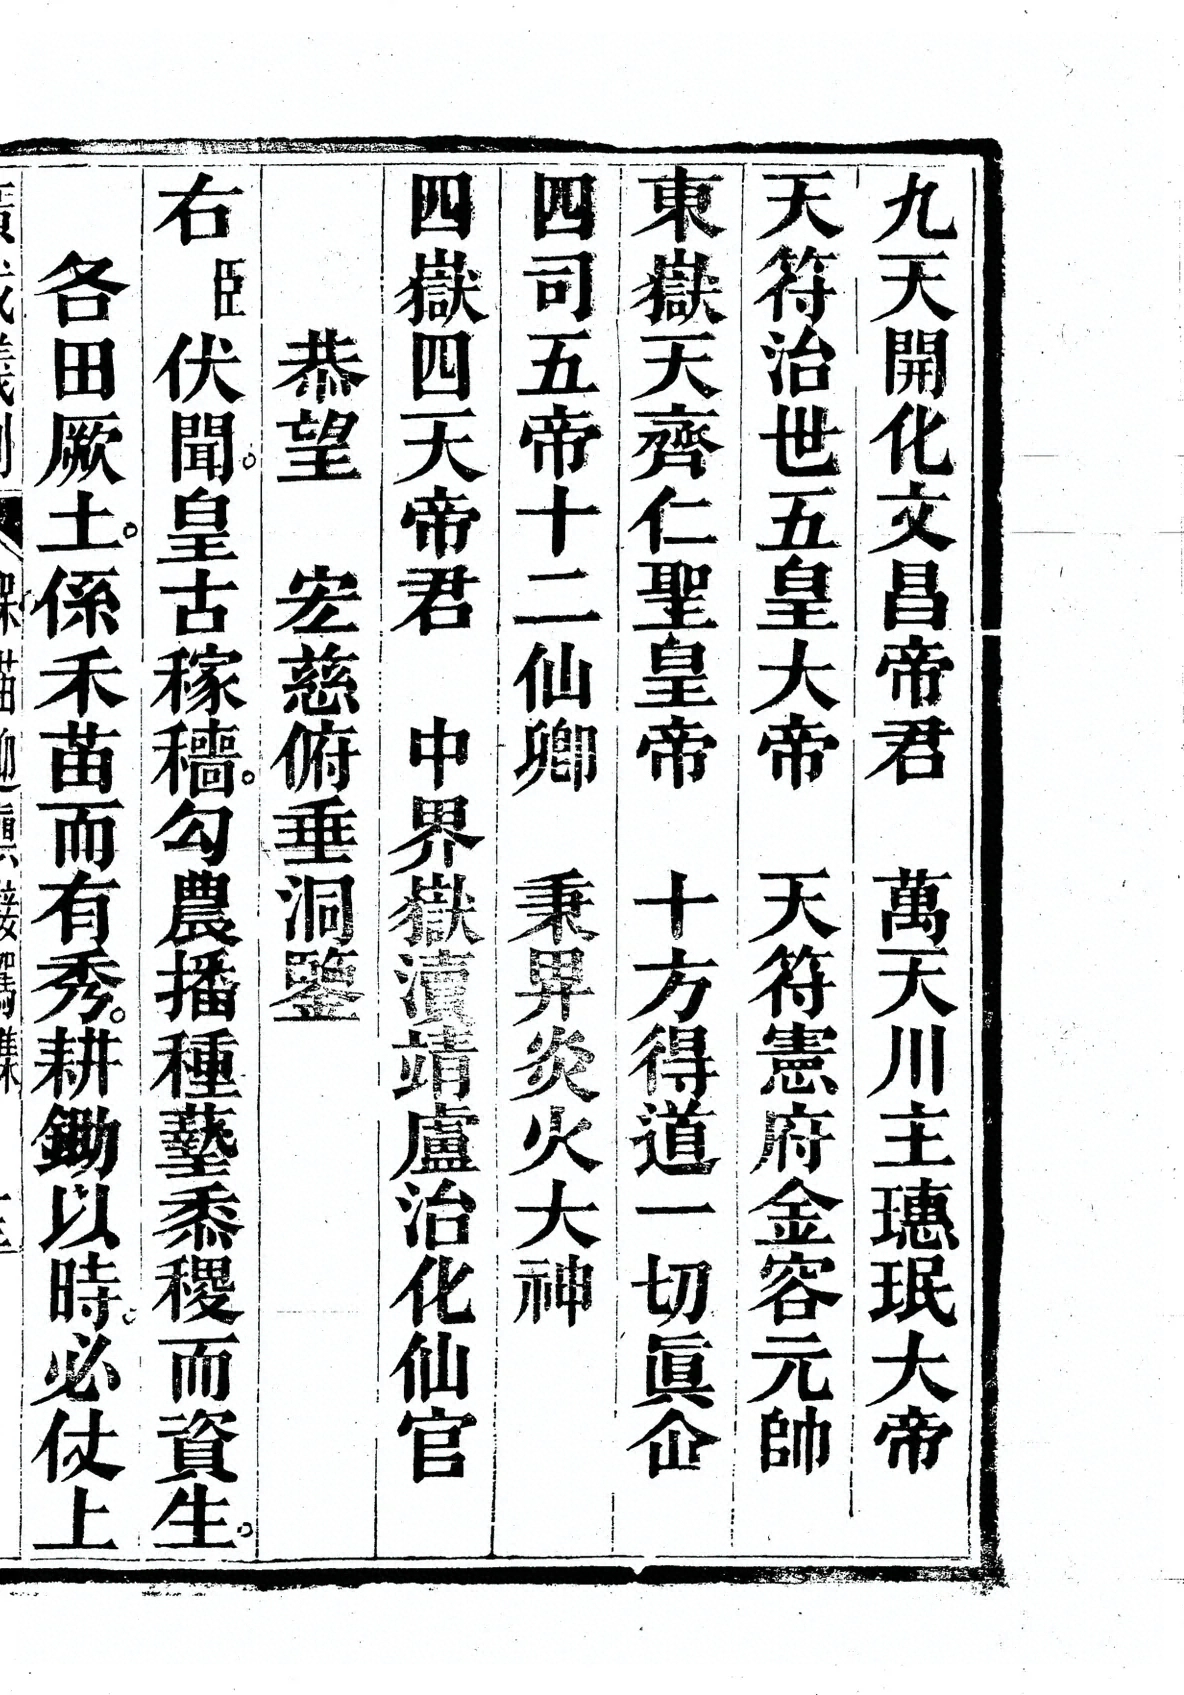 九天開化文昌帝君　萬天川主璤珉大帝
天符治世五皇大帝　天符憲府金容元帥
東嶽天齊仁聖皇帝　十方得道一切眞仚
四司五帝十二仙卿　秉畀炎火大神
四嶽四天帝君　中界嶽瀆靖盧治化仙官
恭望　宏慈俯垂洞鑒
右臣伏聞。皇古稼穡。勾農播種藝黍稷而資生。
各田厥土。係禾苗而有秀。耕鋤以時。必仗上
廣成儀制